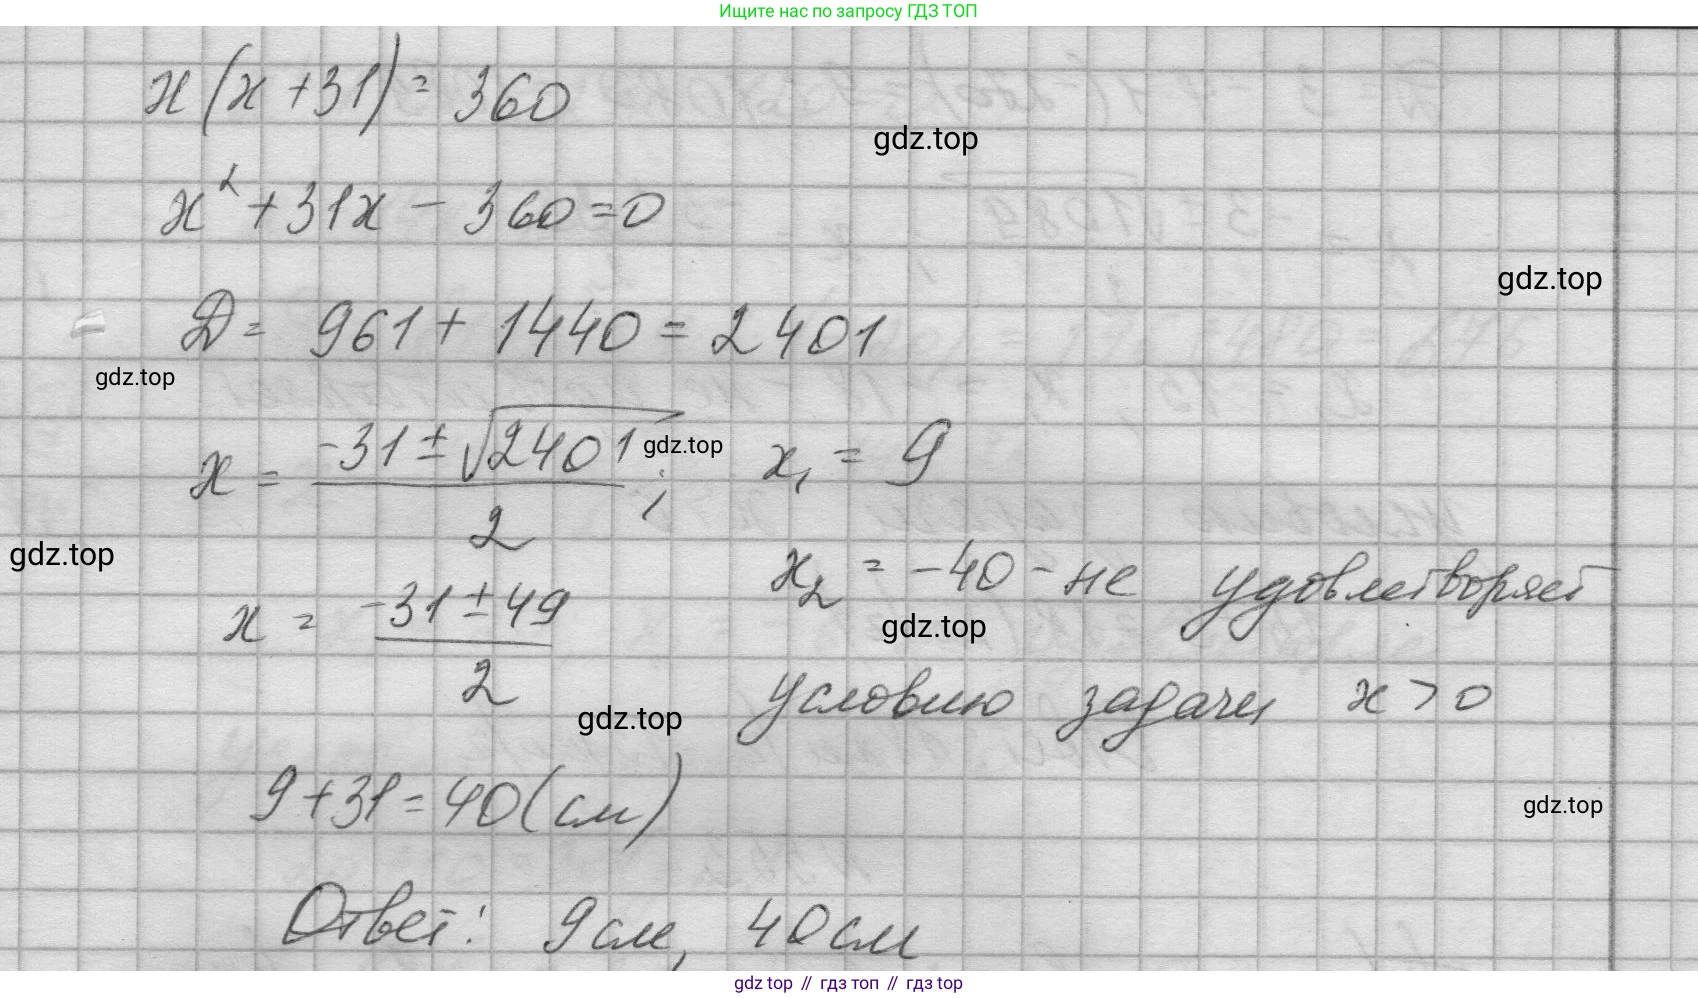 Ищите нас по запросу ГДЗ ТОП
x(x+31)=360
gdz.top
x²+31x-360=0
gdz.top
Д= 961+1440=2401
gdz.top
x = (-31±√2401)/2 ; x₁ = 9
gdz.top
gdz.top
x = (-31±49)/2
x₂ = -40 - не удовлетворяет
gdz.top
условию задачи x>0
gdz.top
9+31=40(см)
gdz.top
Ответ: 9см, 40см
gdz top // гдз топ // гдз top